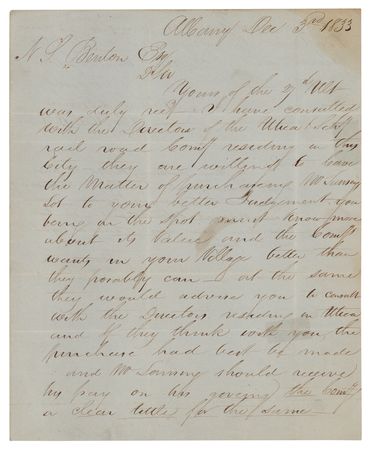 Albany Dec 3rd 1833
N. S. Benton Esq
D Sir
Yours of the 2d Ult
was duly recd I have consulted
with the Directors of the Utica & Schy
rail road Comy residing in this
City they are willing to leave
the Matter of purchasing Mr Lansing
lot to your better Judgement you
being on the spot must know more
about its value and the Comys
wants in your Village better than
they possibly can — at the same
they would advise you to consult
with the Directors residing in Utica
and if they think with you the
purchase had best be made
and Mr Lansing should receive
his pay on his giveing the Comy
a clear tittle for the same —